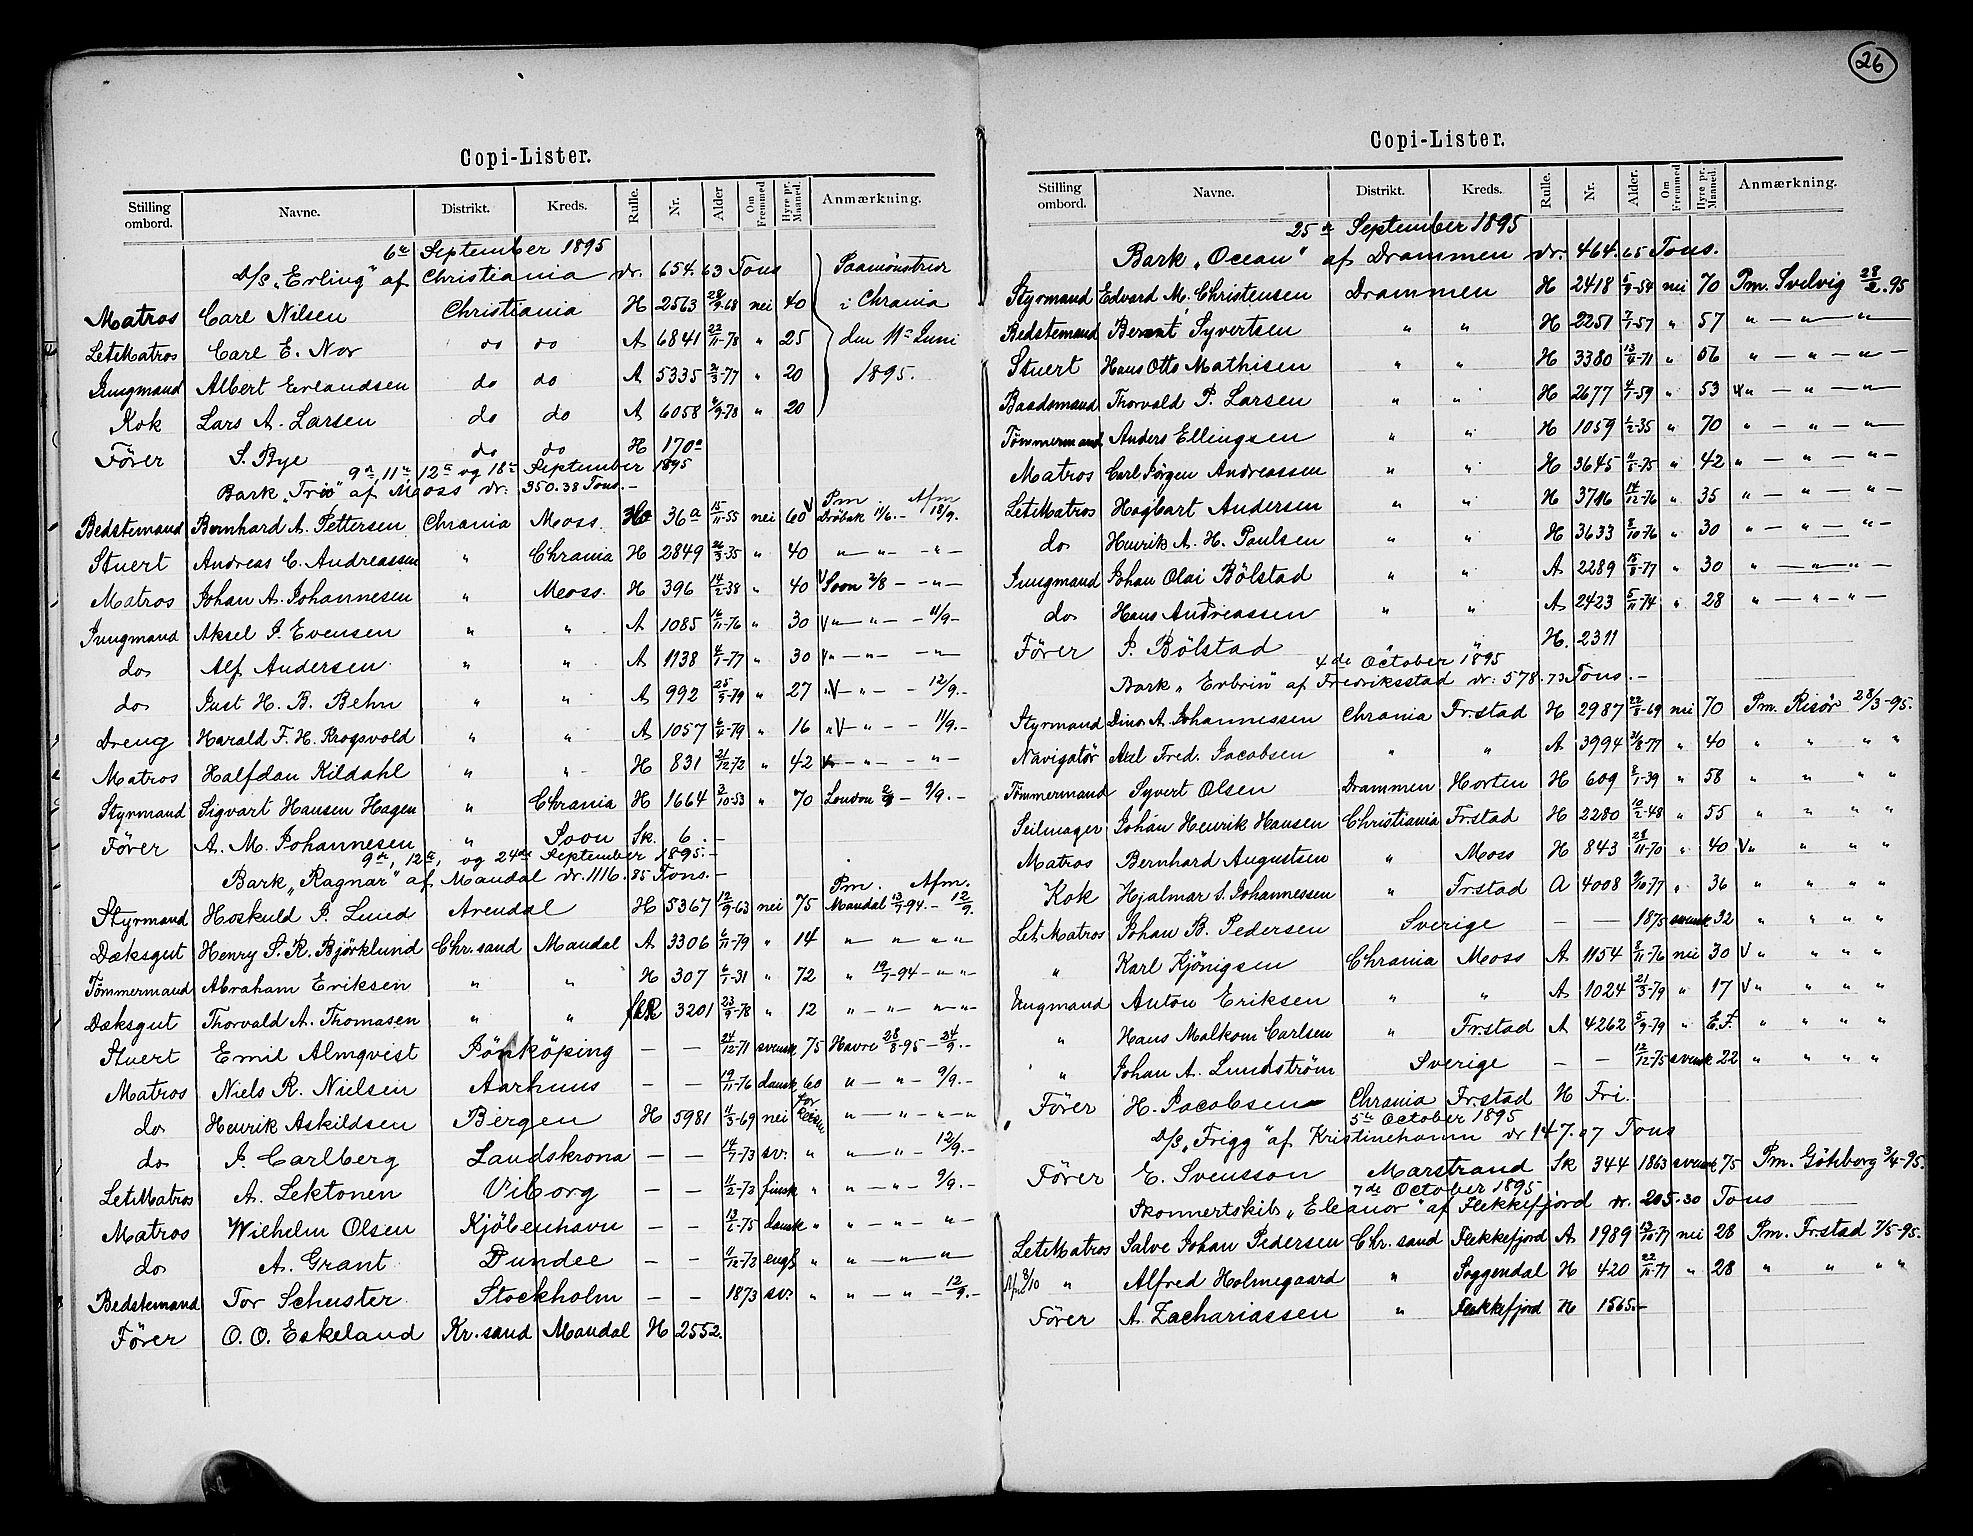 26
Copi-Lister.
Stilling ombord. Navne. Distrikt. Kreds. Rulle. Nr. Alder Om Fremmed Hyre pr. Maaned. Anmærkning.
6te September 1895
D/S „Erling" af Christiania dr. 654.63 Tons
Matros Carl Nilsen Christiania H 2563 28/9-68 nei 40 Paamönstrid i Chrania den 11te Juni 1895.
LetMatros Carl E. Nor do do A 6841 22/11-78 " 25
Jungmand Albert Erlandsen do do A 5335 21/3-77 " 20
Kok Lars A. Larsen do do A 6058 /9-78 " 20
Förer S. Bye do do H 170a
9de, 11te, 12te og 18de September 1895
Bark „Trio" af Moss dr: 350.38 Tons.—
Pm Afm
Bedstemand Bernhard A. Pettersen Chrania Moss. H 36a 15/11-55 nei 60 V Dröbak 11/6.- 18/9.
Stuert Andreas C. Andreassen " Chrania H 2849 26/3-35 " 40 "—"— —"—
Matros Johan A. Johannesen " Moss. H 396 14/2-38 " 40 V Soon 2/8 — —"—
Jungmand Aksel J. Evensen " " A 1085 16/11-76 " 30 V"—"— — 11/9—
do Alf Andersen " " A 1138 4/1-77 " 30 V"—"— —"—
do Just H. B. Behn " " A 992 25/9-79 " 27 "V—"— — 12/9.—
Dreng Harald F. H. Krogsvold " " A 1057 6/11-79 " 16 "V—"— — 11/9.—
Matros Halfdan Kildahl " " H 831 21/12-72 " 42 V"—"— —"—
Styrmand Sigvart Hansen Hagen " Chrania H 1664 3/10-53 " 70 London 2/9 — 9/9.—
Förer A. M. Johannesen " Soon Sk. 6.—
9de, 12te, og 24de September 1895.—
Bark „Ragnar" af Mandal dr. 1116.85 Tons.—
Pm. Afm.
Styrmand Hoskuld J. Lund Arendal H 5367 12/9-63 nei 75 Mandal 13/7-94.— 12/9.
Dæksgut Henry S. R. Björklund Chr.sand Mandal A 3306 6/11-79 " 14 "—"—"—"
Tömmermand Abraham Eriksen " " H 307 6/1-31 " 72 " 19/7-94—"—"
Dæksgut Thorvald A. Thomasen " " 3201 23/9-78 " 12 "—"—"—"—
Stuert Emil Almqvist Jönköping — — 24/12-71 svensk 75 Havre 28/8-95—24/9.—
Matros Niels R. Nielsen Aarhuus — — 19/11-76 dansk 60 "—"— 9/9.—
do Henrik Askildsen Bergen H 5981 11/3-69 nei for Reisen "—"—"—"
do J. Carlberg Landskrona — — 14/7-73 sv. " "—"— 12/9.—
LetMatros A. Lektonen Viborg — — 11/2-73 finsk " "—"— 9/9.—
Matros Wilhelm Olsen Kjöbenhavn — — 13/6-75 dansk " "—"— "—
do A. Grant Dundee — — 11/12-72 engl " "—"—"—
Bedstemand Tor Schuster Stockholm — — 1873 sv. " "—"— 12/9.—
Förer O. O. Eskeland Kr.sand Mandal H 2552.
Copi-Lister.
Stilling ombord. Navne. Distrikt. Kreds. Rulle. Nr. Alder. Om Fremmed Hyre pr. Maaned. Anmærkning.
25de September 1895
Bark „Ocean" af Drammen dr. 464.65 Tons.
Styrmand Edvard M. Christensen Drammen H 2418 5/9-54 nei 70 Pm. Svelvig 28/2.95
Bedstemand Bernt Syvertsen " " H 2251 7/1-57 " 57 "—"—"—
Stuert Hans Otto Mathisen " " H 3380 13/11-71 " 56 "—"—"—
Baadsmand Thorvald P. Larsen " " H 2677 4/1-59 " 53 V"—"—"—
Tömmermand Anders Ellingsen " " H 1059 1/2-35 " 70 "—"—"—
Matros Carl Jörgen Andreassen " " H 3645 11/5-75 " 42 "—"—"—
LetMatros Hagbart Andersen " " H 3716 14/12-76 " 35 "—"—"—
do Henrik A. H. Paulsen " " H 3633 8/10-76 " 30 "—"—"—
Jungmand Johan Olai Bölstad " " A 2289 15/8-77 " 30 "—"—"—
do Hans Andreassen " " A 2423 5/11-74 " 28 "—"—"—
Förer J. Bölstad " " H. 2311
4de October 1895
Bark „Erbrin" af Fredriksstad dr: 578.73 Tons.—
Styrmand Dinor A. Johannessen Chrania Fr.stad H 2987 22/8-69 nei 70 Pm. Risör 28/3-95.
Navigatör Axel Fred. Jacobsen " " A 3994 31/8-77 " 40 " " " "
Tömmermand Syvert Olsen Drammen Horten H 609 8/1-39 " 58 " " " "
Seilmager Johan Henrik Hansen Christiania Fr.stad H 2280 10/2-48 " 55 " " " "
Matros Bernhard Augustsen " Moss H 843 28/11-70 " 40 V" " " "
Kok Hjalmar S. Johannessen " Fr.stad A 4008 9/10-77 " 36 " " " "
Let Matros Johan B. Pedersen Sverige — — 1875 svensk 32 " " " "
" Karl Kjönigsen Chrania Moss A 1154 8/11-76 nei 30 V" " " "
Jungmand Anton Eriksen " " A 1024 21/3-79 " 17 V" " " "
" Hans Malkom Carlsen " Fr.stad A 4262 5/9-79 " E.F. " " " "
" Johan A. Lundström Sverige — — 12/12-75 svensk 22 " " " "
Förer H. Jacobsen Chrania Fr.stad H Fri.
5te October 1895
D/S „Frigg" af Kristinehamn dr 147.07 Tons
Förer E. Svensson Marstrand Sk 344 1863 svensk 75 Pm. Götborg 3/4-95.
7de October 1895
Skonnertskib „Eleanor" af Flekkefjord dr. 205.30 Tons
LetMatros Salve Johan Pedersen Chr.sand Flekkefjord A 1989 12/10-77 nei 28 Pm. Fr.stad 7/5-95.
" Alfred Holmegaard " Soggendal H 420 22/11-77 " 28 " " " "
Förer A. Zachariassen " Flekkefjord H 1565.—